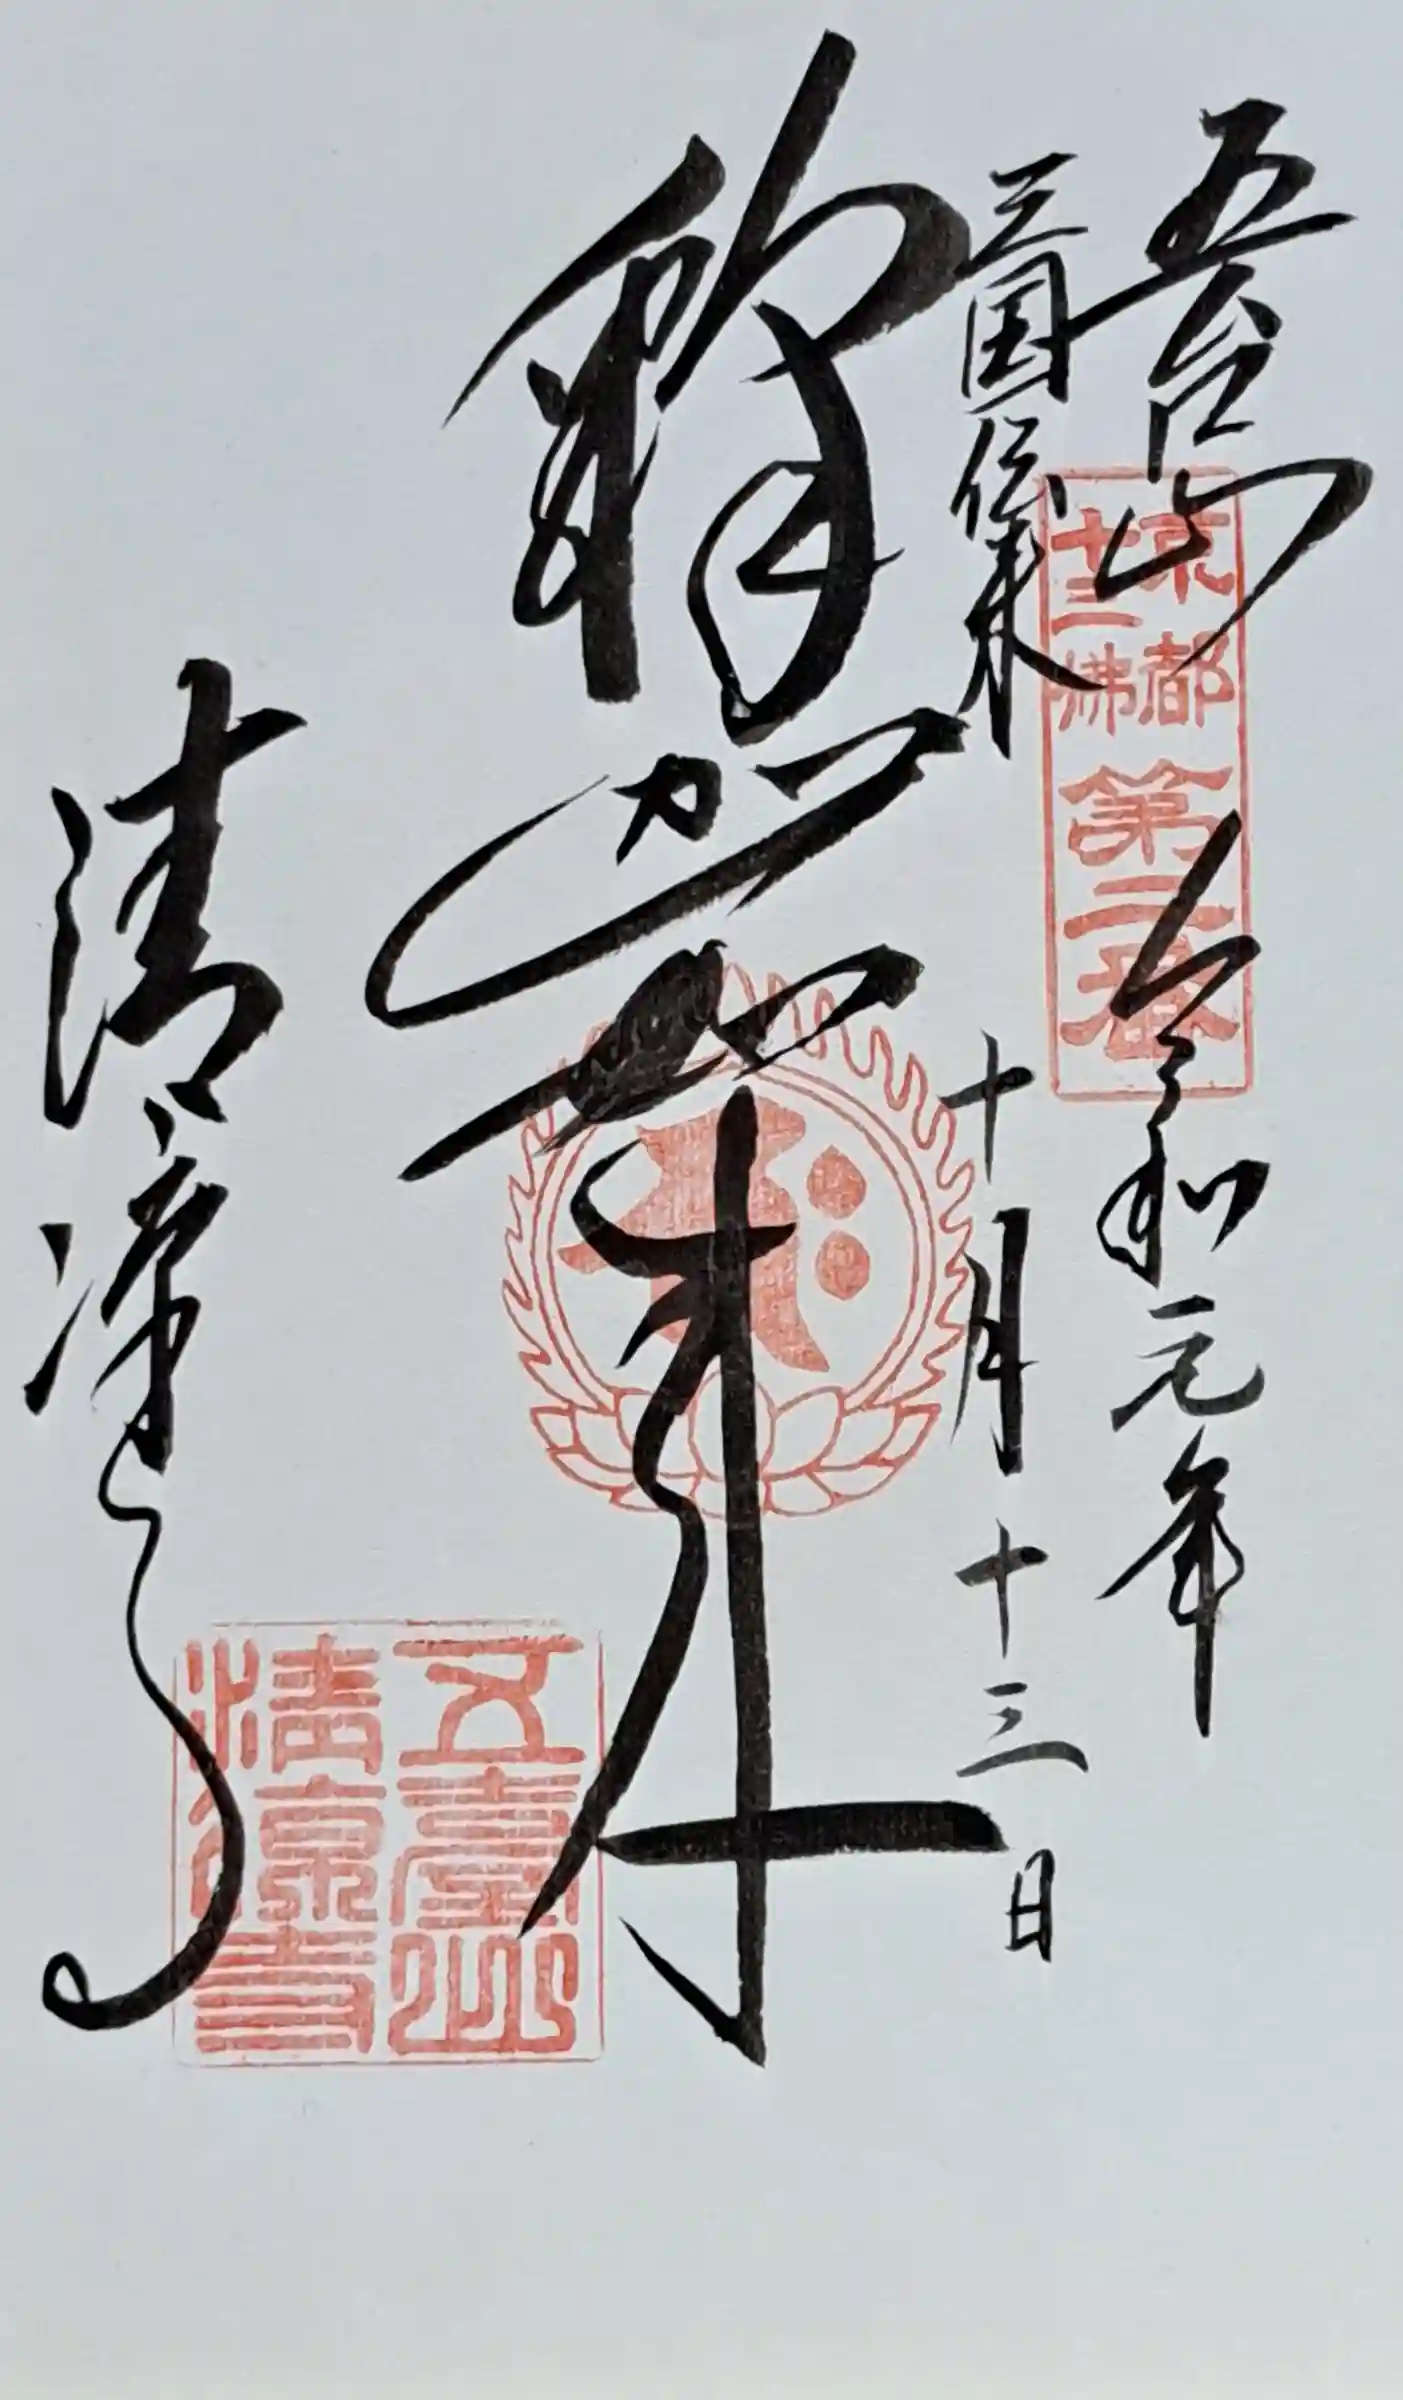 五台山
令和元年
三国伝来
十月十三日
釋迦如来
清凉寺
京都
十三佛
第二番
五臺山
清凉寺